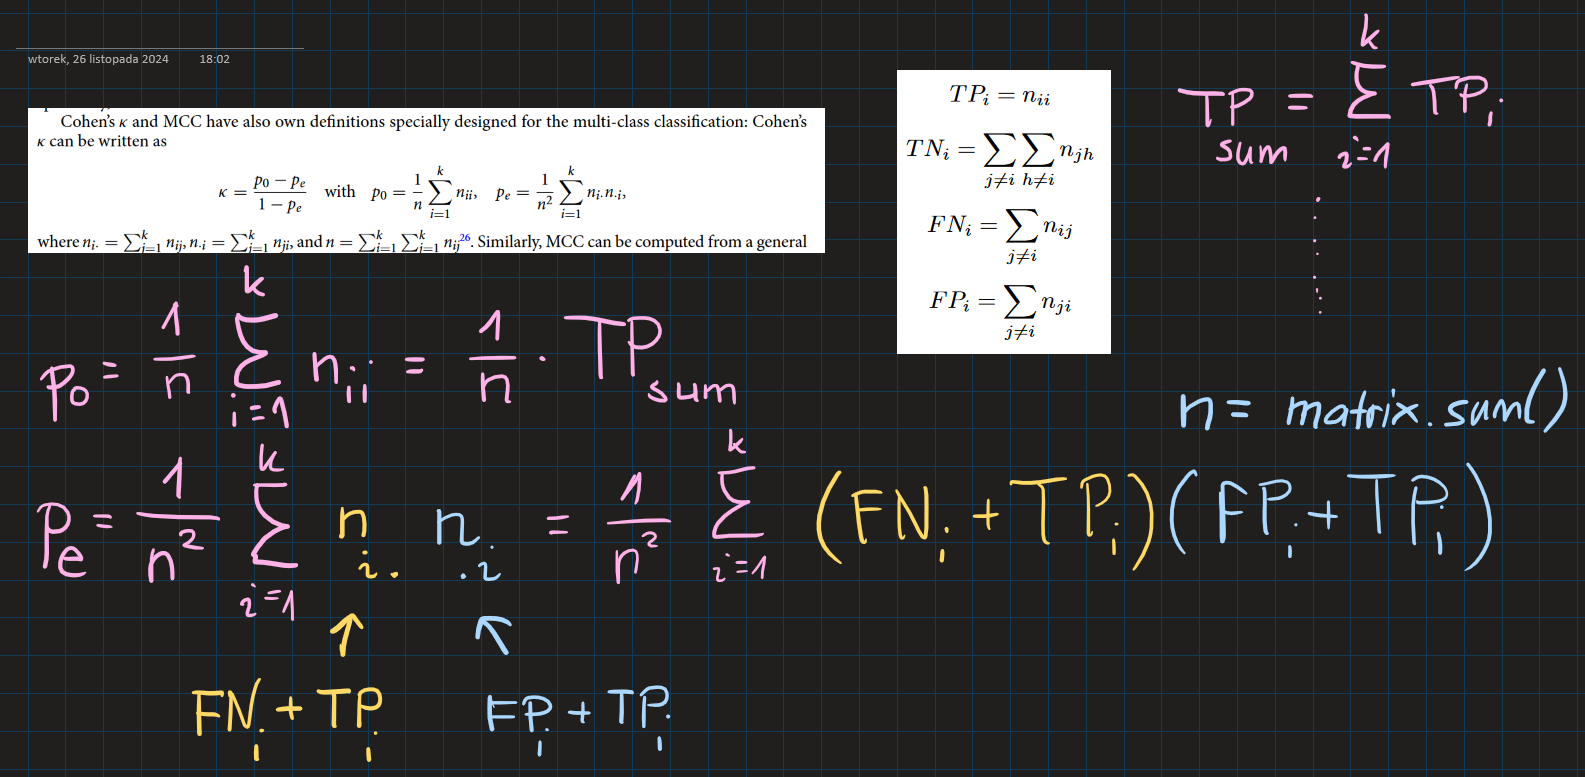 wtorek, 26 listopada 2024 18:02
Cohen’s κ and MCC have also own definitions specially designed for the multi-class classification: Cohen’s
κ can be written as
κ = (p₀ − pₑ) / (1 − pₑ) with p₀ = 1/n ∑_{i=1}^{k} n_{ii}, pₑ = 1/n² ∑_{i=1}^{k} n_{i·} n_{·i},
where n_{i·} = ∑_{j=1}^{k} n_{ij}, n_{·i} = ∑_{j=1}^{k} n_{ji}, and n = ∑_{i=1}^{k} ∑_{j=1}^{k} n_{ij}²⁶. Similarly, MCC can be computed from a general
TP_i = n_{ii}
TN_i = ∑_{j≠i} ∑_{h≠i} n_{jh}
FN_i = ∑_{j≠i} n_{ij}
FP_i = ∑_{j≠i} n_{ji}
TP_{sum} = ∑_{i=1}^{k} TP_i
p₀ = 1/n ∑_{i=1}^{k} n_{ii} = 1/n · TP_{sum}
n = matrix.sum()
pₑ = 1/n² ∑_{i=1}^{k} n_{i·} n_{·i} = 1/n² ∑_{i=1}^{k} (FN_i + TP_i)(FP_i + TP_i)
↑ ↖
FN_i + TP_i FP_i + TP_i